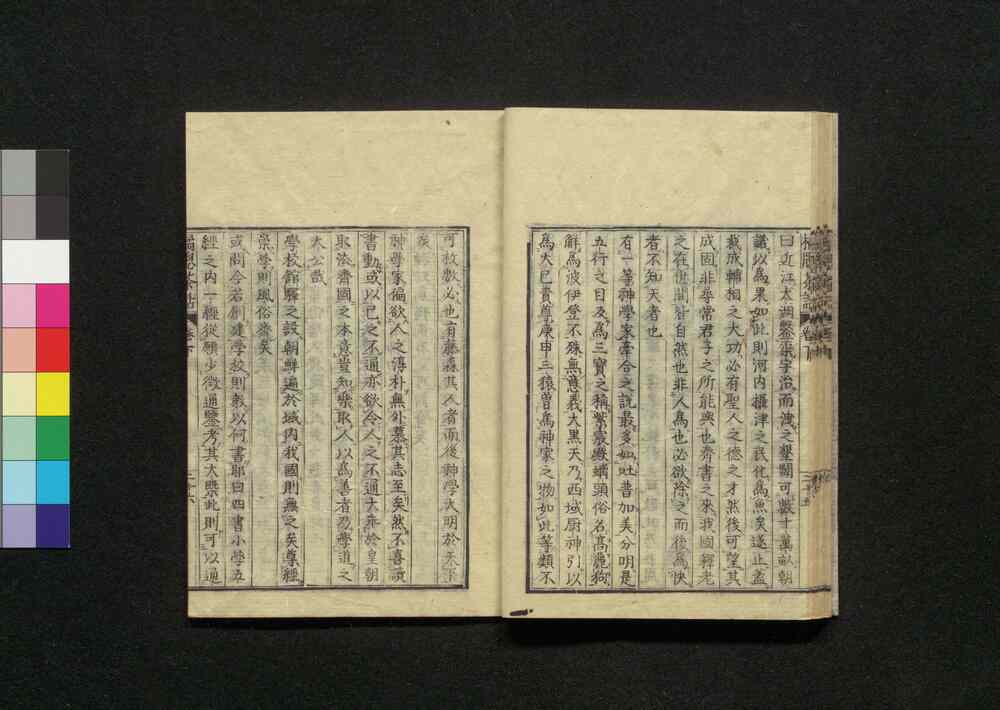 曰近江太湖鑿渠宇治而洩之墾闢可數十萬畝朝
議以為果如此則河内攝津之民化為魚矣遂止蓋
裁成輔相之大功必有聖人之德之才然後可望其
成固非尋常君子之所能與也齋書之來我國釋老
之在世間皆自然也非人為也必欲除之而後為快
者不知天者也
有一等神學家牽合之説最多如吐普加美分明是
五行之目及為三寶之稱紫嚴嶽蠕頭俗名高麗狗
解為波伊登不殊無意義大黒天乃西域厨神引以
為大已貴尊庚申三猿曽為神家之物如此等類不
可枚數必也有藤森其人者而後神學大明於天下
矣
神學家偏欲人之淳朴無外慕其志至矣然不喜讀
書動或以已之不通亦欲令人之不通大乖於皇朝
取法齊國之本意豈知樂取人以為善者忍學道之
太公哉
學校館驛之設朝鮮遍於域内我國則無之矣尊經
崇學則風俗齋矣
或問今若創建學校則教以何書耶曰四書小學五
經之内一經從願少微通鑒考其大槩此則可以通